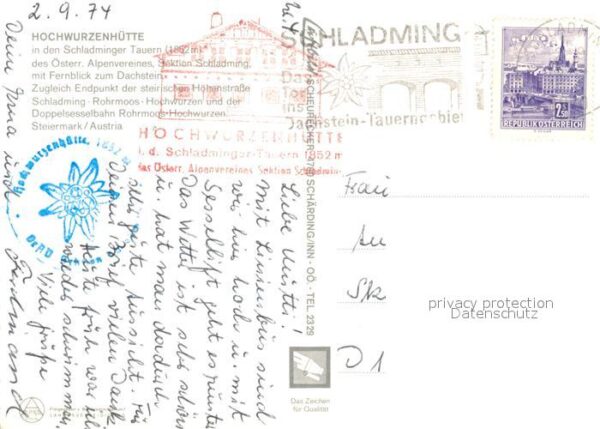 2.9.74
HOCHWURZENHÜTTE
in den Schladminger Tauern (1852 m)
des Österr. Alpenvereines, Sektion Schladming,
mit Fernblick zum Dachstein.
Zugleich Endpunkt der steirischen Höhenstraße
Schladming - Rohrmoos - Hochwurzen und der
Doppelsesselbahn Rohrmoos-Hochwurzen.
Steiermark / Austria
HOCHWURZENHÜTTE
i. d. Schladminger-Tauern 1852 m
des Österr. Alpenvereins Sektion Schladming
Hochwurzenhütte, 1852 m
SCHLADMING
Das
Tor
ins
Dachstein-Tauerngebiet
2.50
REPUBLIK ÖSTERREICH
SCHÄRDING/INN - OÖ - TEL. 2329
Liebe Mutti!
Mit Linienbus sind
wir hier hoch u. mit
Sessellift geht es runter
Das Wetter ist sehr schön
u. hat man dadurch
sehr gute Aussicht. Für
Deinen Brief vielen Dank
Heute früh war ich
wieder schwimmen.
Viele Grüße
Ferdinand
Deine Irma und
Frau
An
Sk
D1
privacy protection
Datenschutz
Das Zeichen
für Qualität